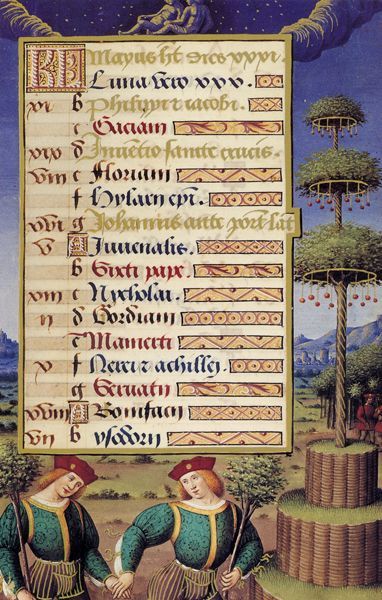 KL Mayus ht dies xxxi.
Luna vero xxx.
xi b Philippi & iacobi.
c Gaciani
xix d Inventio sancte crucis.
viii e Floriani
f Hylarii epi.
xvi g Johannis ante port lat
v A Iuvenalis.
b Sixti pape.
xiii c Nycholai.
ii d Gordiani
e Mamerti
x f Nerei & achillei
g Servatii
xviii A Bonifacii
vii b ysidorii